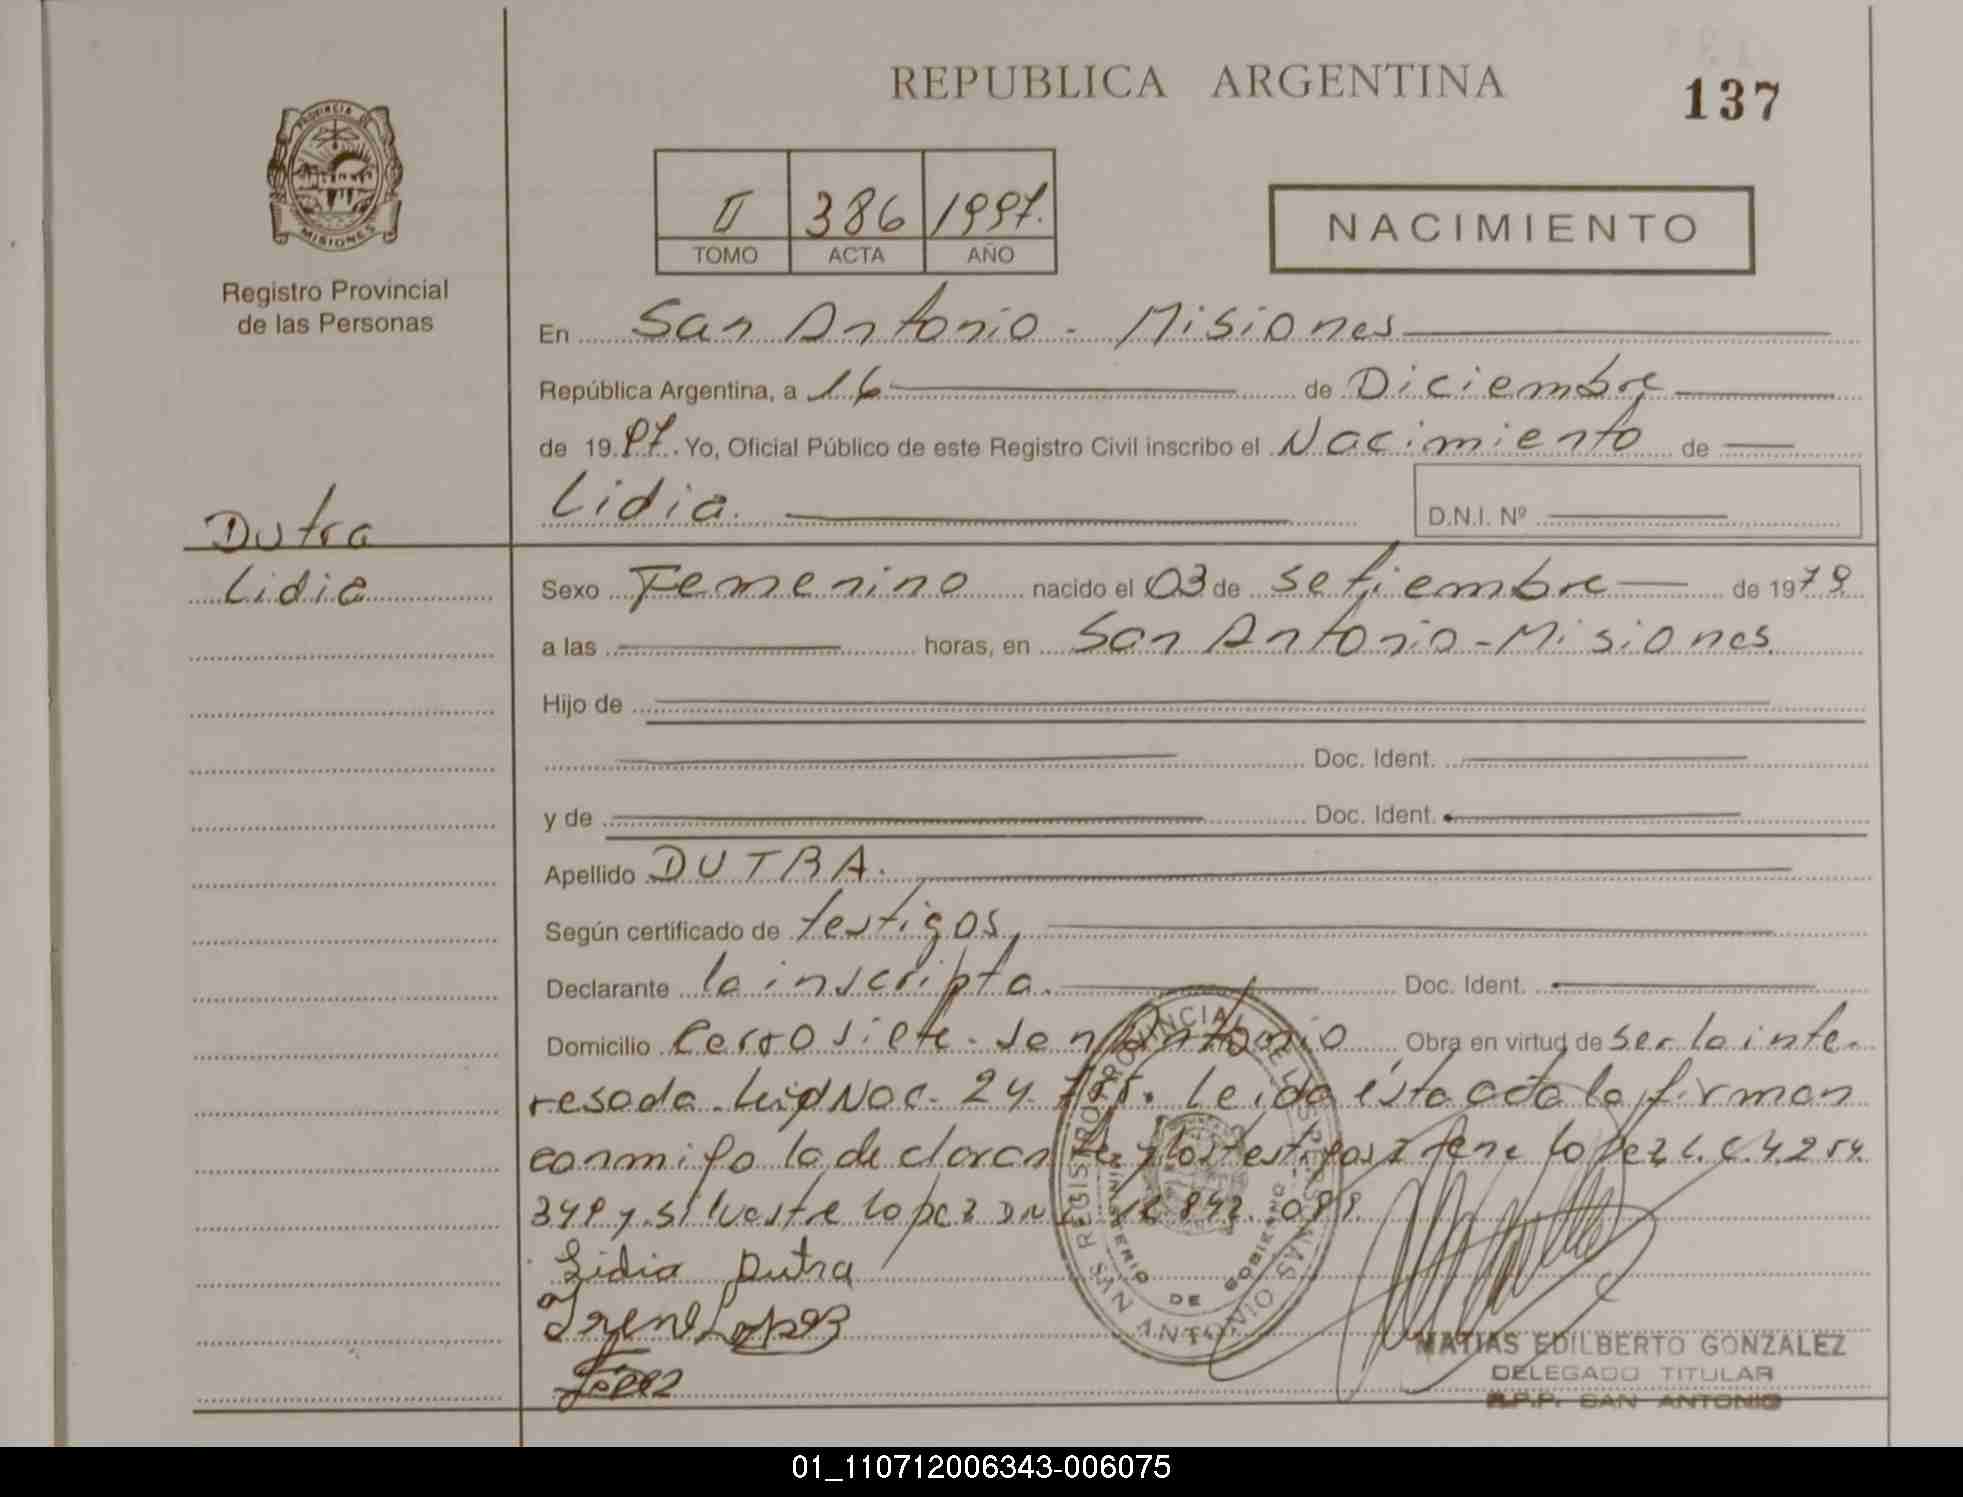 REPUBLICA ARGENTINA
137
PROVINCIA DE
MISIONES
Registro Provincial
de las Personas
II 386 1997.
TOMO ACTA AÑO
NACIMIENTO
En San Antonio - Misiones
República Argentina, a 16 de Diciembre
de 19 97. Yo, Oficial Público de este Registro Civil inscribo el Nacimiento de
Lidia.
D.N.I. Nº
Dutra
Lidia
Sexo Femenino nacido el 03 de Setiembre de 1979
a las horas, en San Antonio - Misiones.
Hijo de
Doc. Ident.
y de Doc. Ident.
Apellido DUTRA.
Según certificado de testigos,
Declarante la inscripta. Doc. Ident.
Domicilio Cerro siete - San Antonio Obra en virtud de ser la inte-
resada. Ley Nac. 24. Leida ésta acta la firman
conmigo la declarante y los testigos Irene Lopez L.C. 4.254.
349 y Silvestre Lopez DNI
Lidia Dutra
Irene Lopez
Lopez
REGISTRO PROVINCIAL DE LAS PERSONAS
MINISTERIO DE GOBIERNO
SAN ANTONIO
MATIAS EDILBERTO GONZALEZ
DELEGADO TITULAR
R.P.P. SAN ANTONIO
01_110712006343-006075